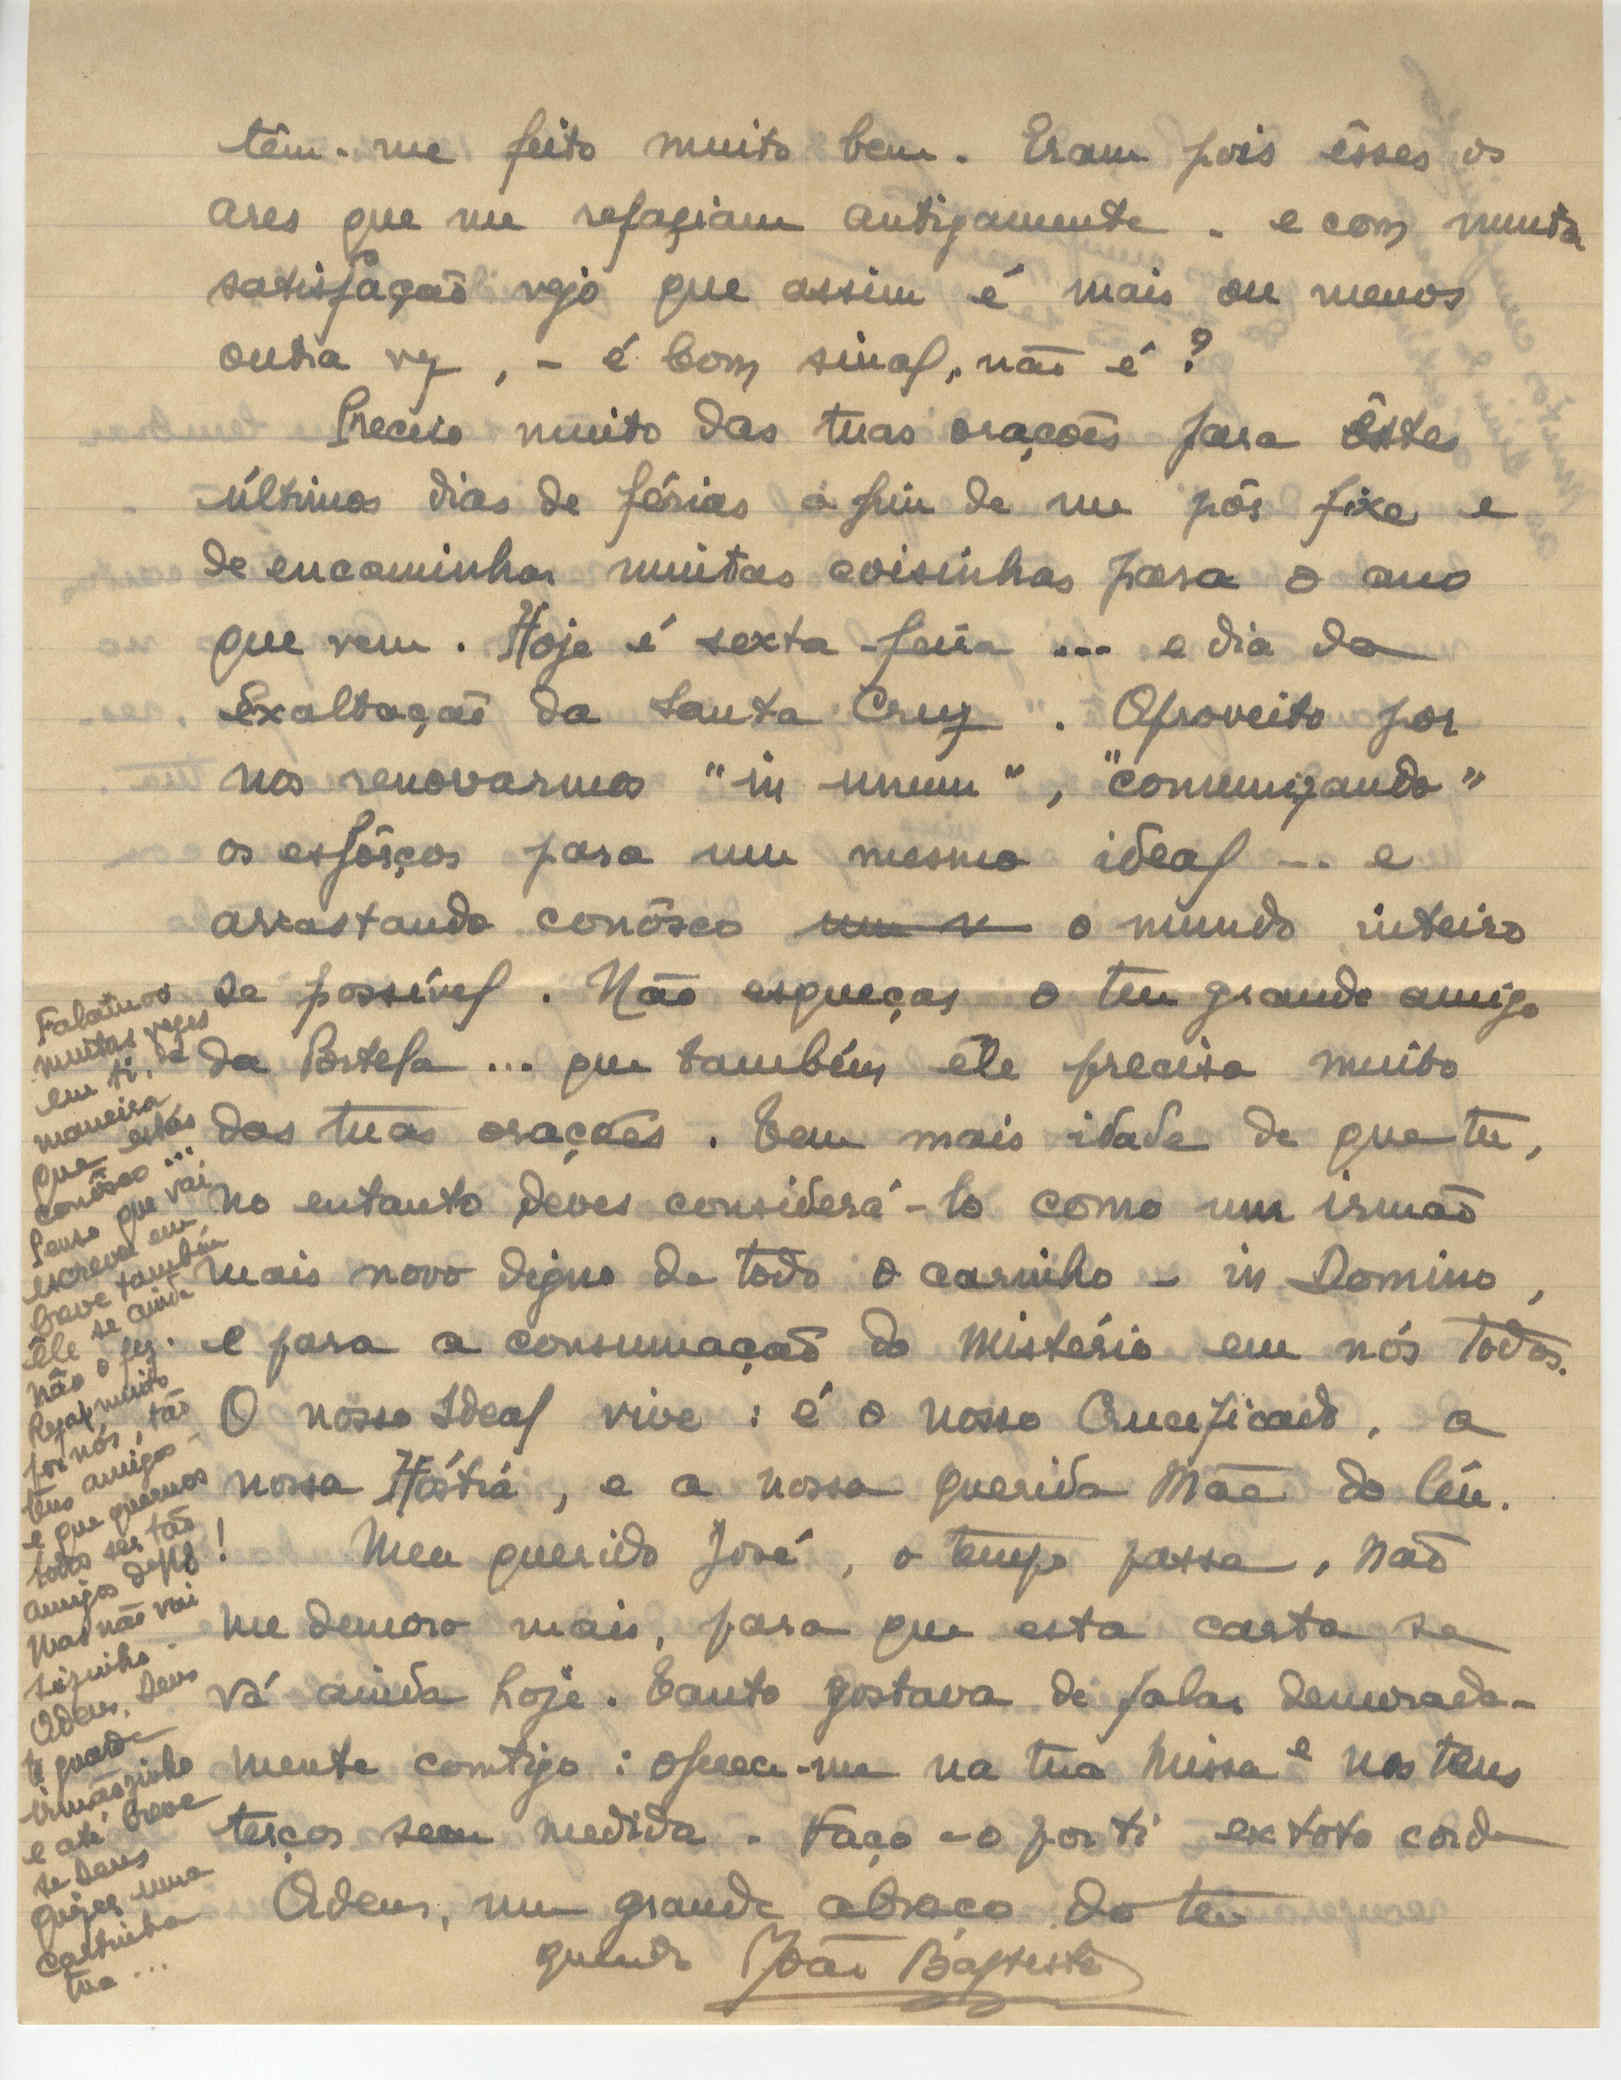 têm-me feito muito bem. Eram pois êsses os
ares que me refaziam antigamente - e com muita
satisfação vejo que assim é mais ou menos
outra vez, - é bom sinal, não é?
Preciso muito das tuas orações para êstes
últimos dias de férias a fim de me pôr fixe e
de encaminhar muitas coisinhas para o ano
que vem. Hoje é sexta-feira ... e dia da
Exaltação da Santa Cruz. Aproveito por
nos renovarmos "in unum", "comunizando"
os esforços para um mesmo ideal ... e
arrastando conôsco um v o mundo inteiro
se possível. Não esqueças o teu grande amigo
da Portela ... que também êle precisa muito
das tuas orações. Tem mais idade de que tu,
no entanto deves considerá-lo como um irmão
mais novo digno de todo o carinho - in Domino,
e para a consumação do Mistério em nós todos.
O nosso Ideal vive: é o nosso Crucificado, a
nossa Hóstia, e a nossa querida Mãe do Céu.
Meu querido José, o tempo passa, não
me demoro mais, para que esta carta se
vá ainda hoje. Tanto gostava de falar demorada-
mente comtigo: oferece-me na tua Missa e nos teus
terços sem medida. Faço-o por ti ex toto corde
Adeus, um grande abraço do teu
querido João Baptista
Falamos
muitas vezes
em ti, de
maneira
que estás
conôsco ...
Penso que vai
escrever em
breve também
êle se ainda
não o fez.
Reza muito
por nós, tão
teus amigos -
e que queremos
todos ser tão
amigos d'
!
Mas não vai
sòzinho.
Adeus, Deus
te guarde
irmãozinho
e até breve
se Deus
quizer uma
cartinha
tua ...